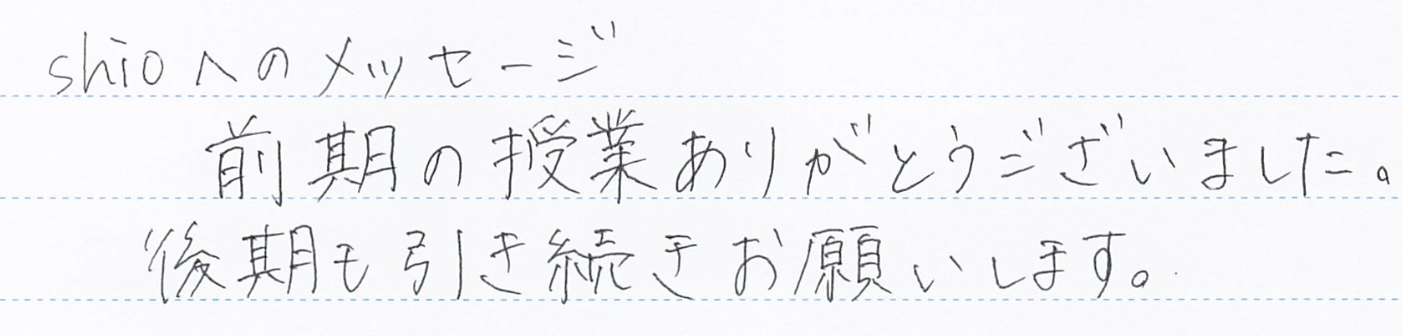 shioへのメッセージ
前期の授業ありがとうございました。
後期も引き続きお願いします。